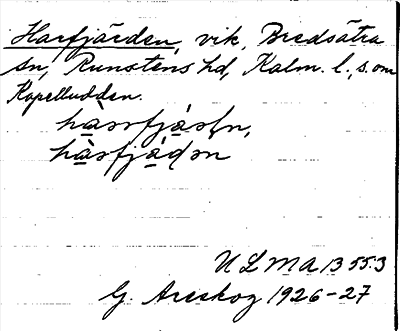 Harfjärden, vik, Bredsätra
sn, Runstens hd, Kalm. l., s. om
Kapelludden.
hàrsfjá
hàrfjáḍən
ULMA 13 55:3
G. Areskog 1926-27